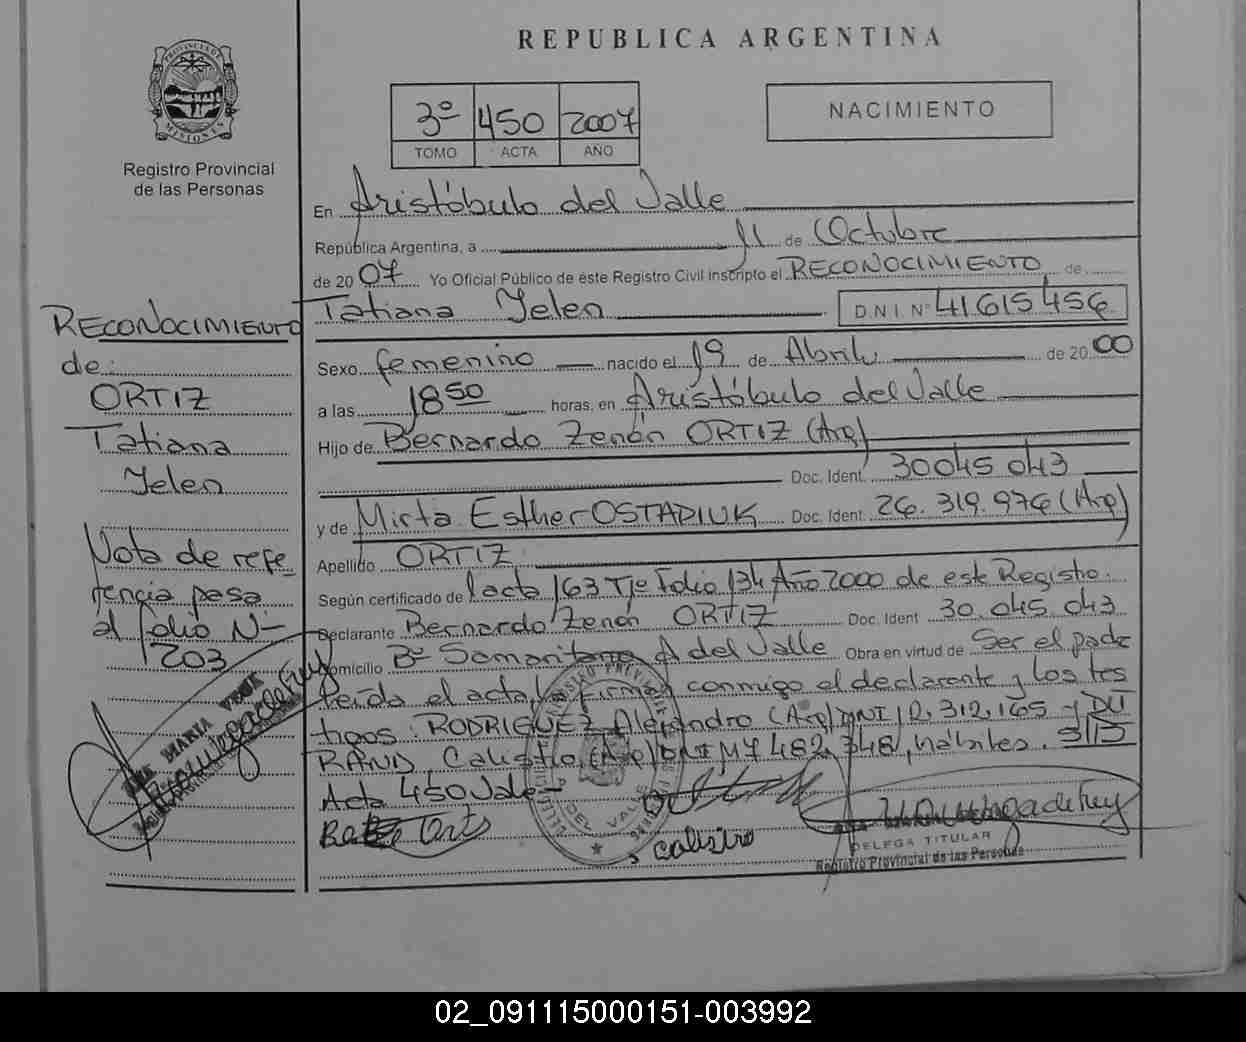 REPUBLICA ARGENTINA
PROVINCIA DE
MISIONES
Registro Provincial
de las Personas
3º 450 2007
TOMO ACTA AÑO
NACIMIENTO
En Aristóbulo del Valle
República Argentina, a 11 de Octubre
de 2007 Yo Oficial Público de este Registro Civil inscripto el RECONOCIMIENTO de
Tatiana Yelen D.N.I. Nº 41615456
Sexo femenino nacido el 19 de Abril de 2000
a las 18 50 horas, en Aristóbulo del Valle
Hijo de Bernardo Zenón ORTIZ (Arg)
Doc. Ident. 30045 043
y de Mirta Esther OSTADIUK Doc. Ident. 26.319.976 (Arg)
Apellido ORTIZ
Según certificado de acta 163 Tº Folio 134 Año 2000 de este Registro.
Declarante Bernardo Zenón ORTIZ Doc. Ident 30.045.043
Domicilio Bº Samaritano A del Valle Obra en virtud de Ser el padre
leída el acta, la firman conmigo el declarante y los tes
tigos: RODRIGUEZ Alejandro (Arg) DNI 12.312.165 y DU
RAND Calistro (Arg) DNI M7 482.348, hábiles.
Acta 450 Vale-
calistro
DELEGA TITULAR
Registro Provincial de las Personas
RECONOCIMIENTO
de:
ORTIZ
Tatiana
Yelen
Nota de refe_
rencia pasa
al folio N-
203
02_091115000151-003992